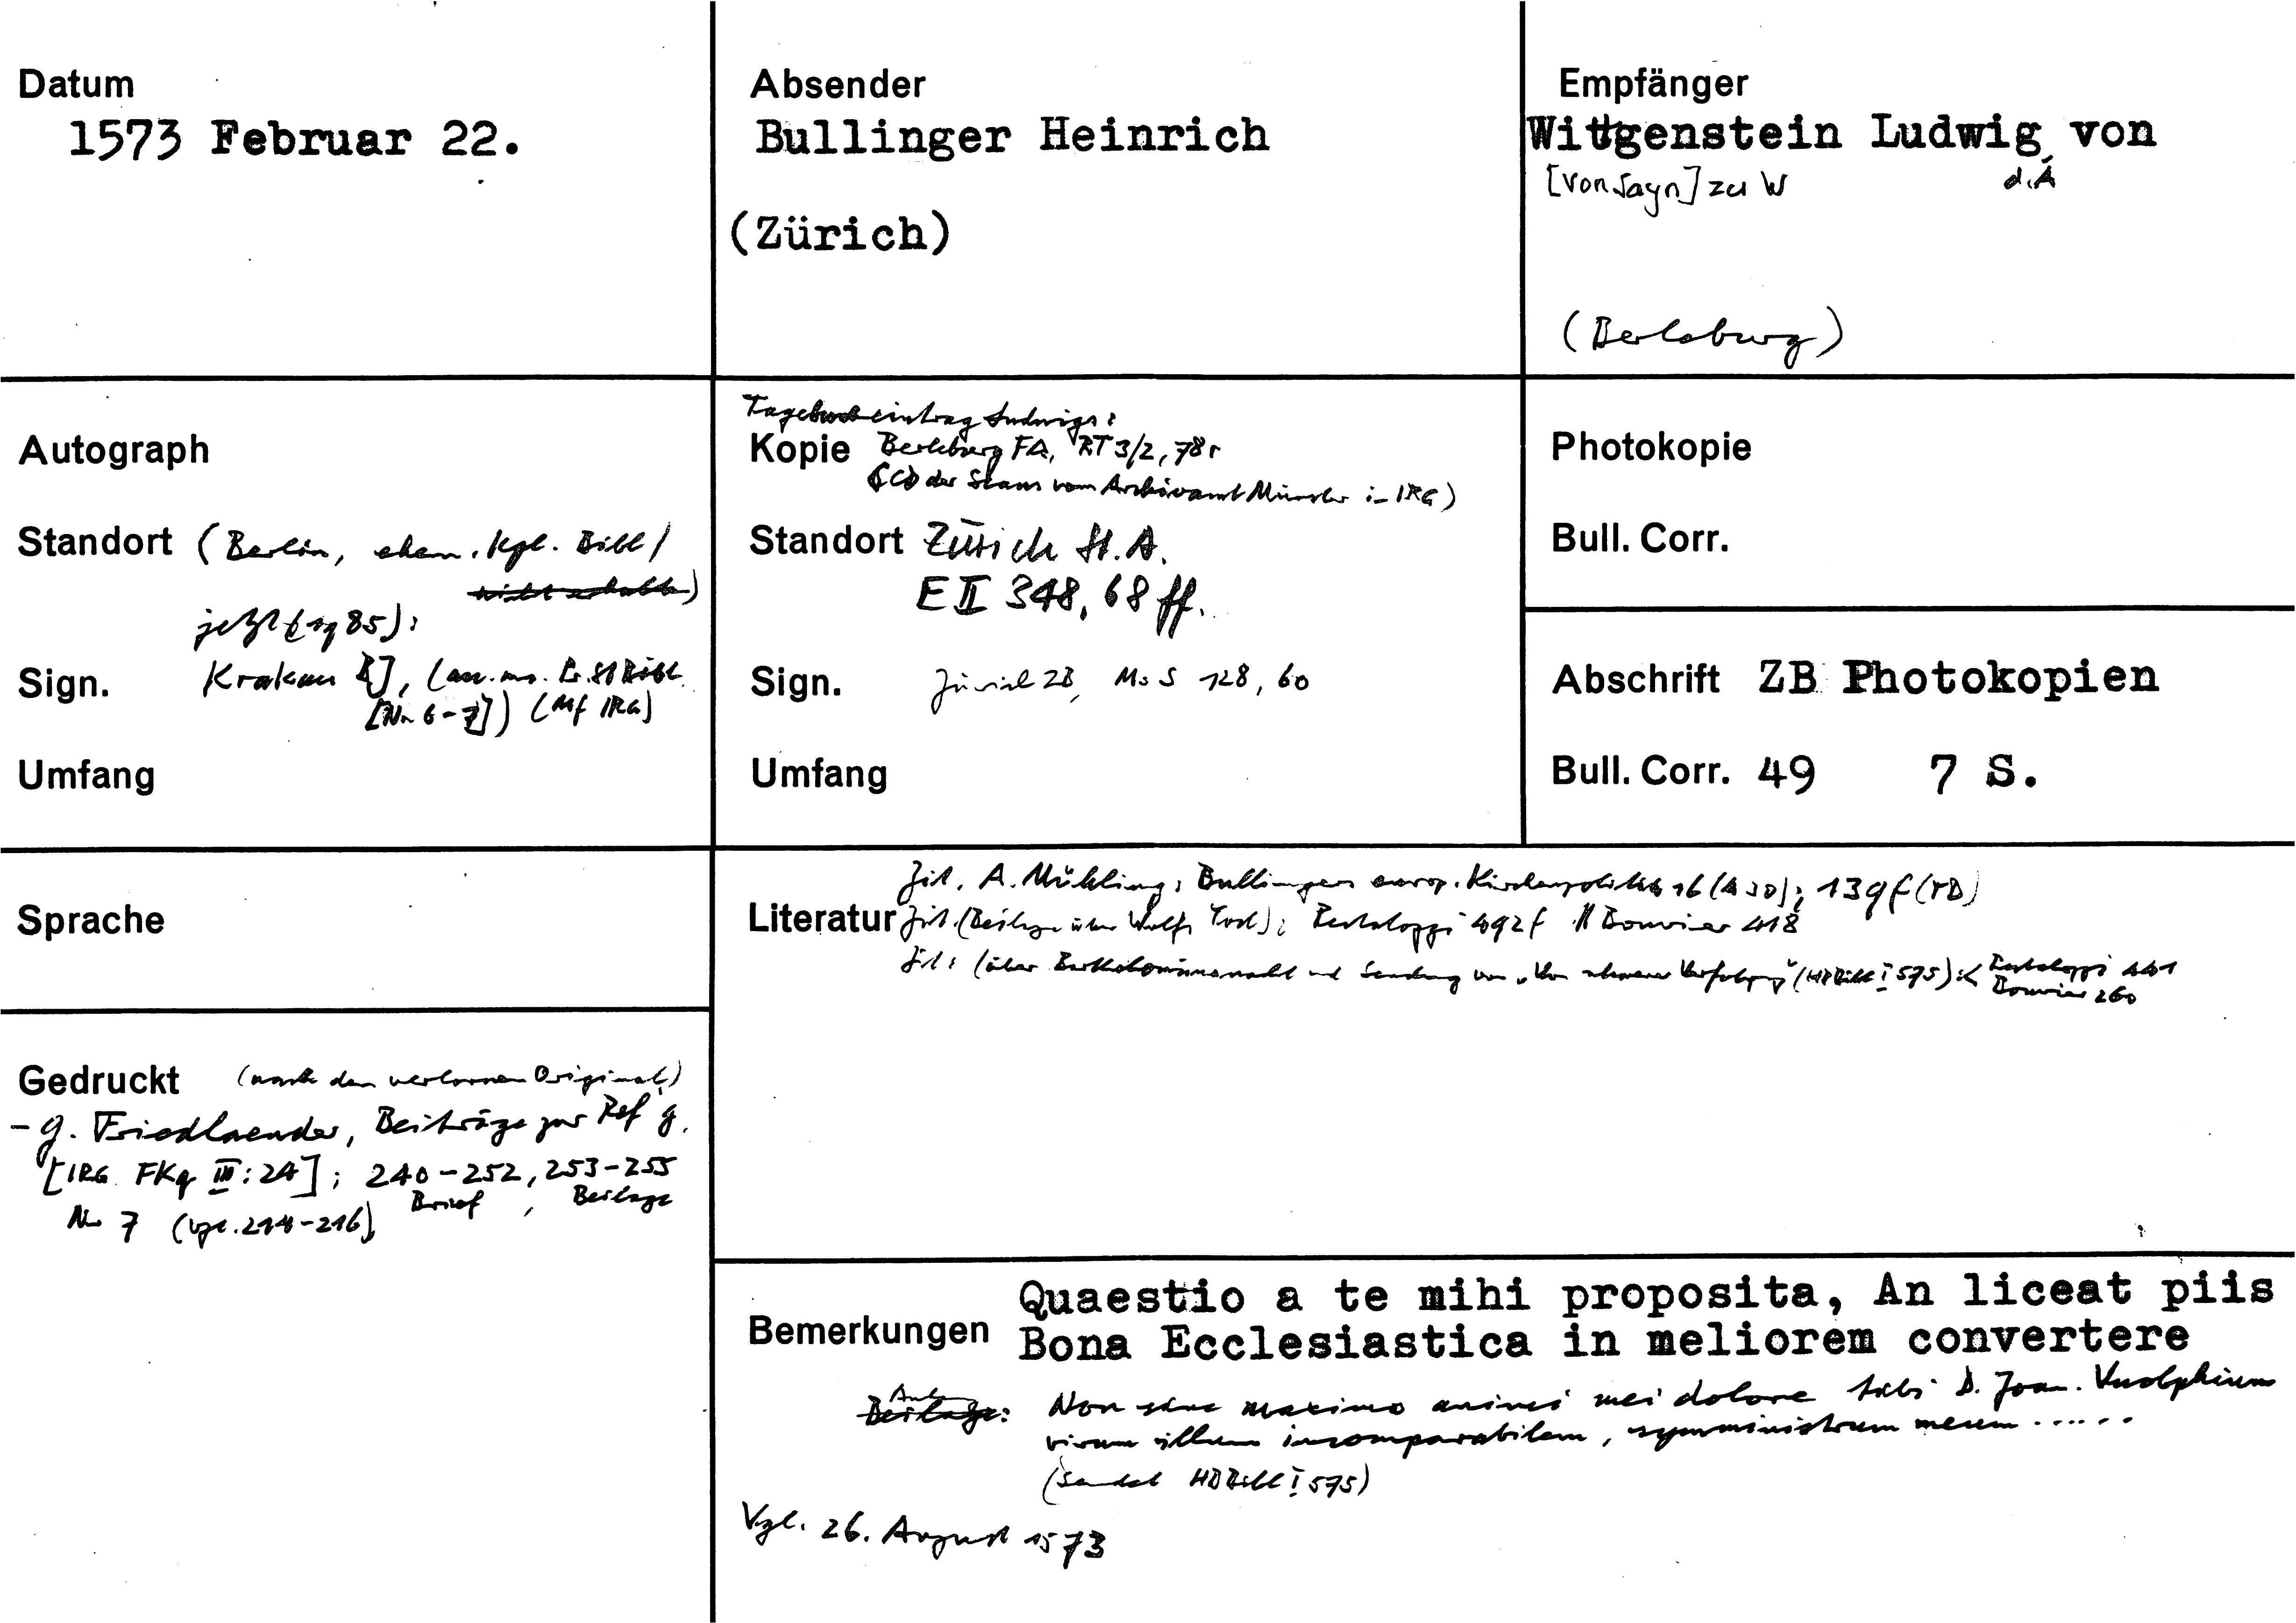 Datum
1573 Februar 22.
Absender
Bullinger Heinrich
(Zürich)
Empfänger
Wittgenstein Ludwig, von
[von Sayn] zu W d. Ä
(Berleburg)
Autograph
Standort (Berlin, ehem. Kgl. Bibl /
nicht erhalten)
jetzt (sg 85):
Sign. Krakau BJ,
[Nr 6-7]) (Mf IRG)
Umfang
Tagebucheintrag Ludwigs:
Kopie Berleburg FA, RT 3/2, 78r
(CD der Scans vom Archivamt Münster in IRG)
Standort Zürich St. A.
E II 348, 68 ff.
Sign. Zürich ZB, Ms S 128, 60
Umfang
Photokopie
Bull. Corr.
Abschrift ZB Photokopien
Bull. Corr. 49 7 S.
Sprache
Zit. A. Mühling, Bullingers europ. Kirchenpolitik 16 (A 30); 139f (TB)
Literatur Zit. (Beilage über Wolfs Tod): Pestalozzi 492f // Bouvier 418
Zit: (über Bartholomäusnacht und Sendung von "Von schwerer Verfolgung" (HBBibl I 575): Pestalozzi 441
Bouvier 260
Gedruckt (nach dem verlornen Original)
- G. Friedlaender, Beiträge zur Ref'g.
[IRG FKg III: 24]; 240-252, 253-255
Brief, Beilage
Nr 7 (vgl. 214-216)
Bemerkungen Quaestio a te mihi proposita, An liceat piis
Bona Ecclesiastica in meliorem convertere
Beilage: Non sine maximo animi mei dolore tibi D. Joan. Vuolphium
virum illum incomparabilem, symministrum meum ......
(sendet HBBibl I 575)
Vgl. 26. August 1573